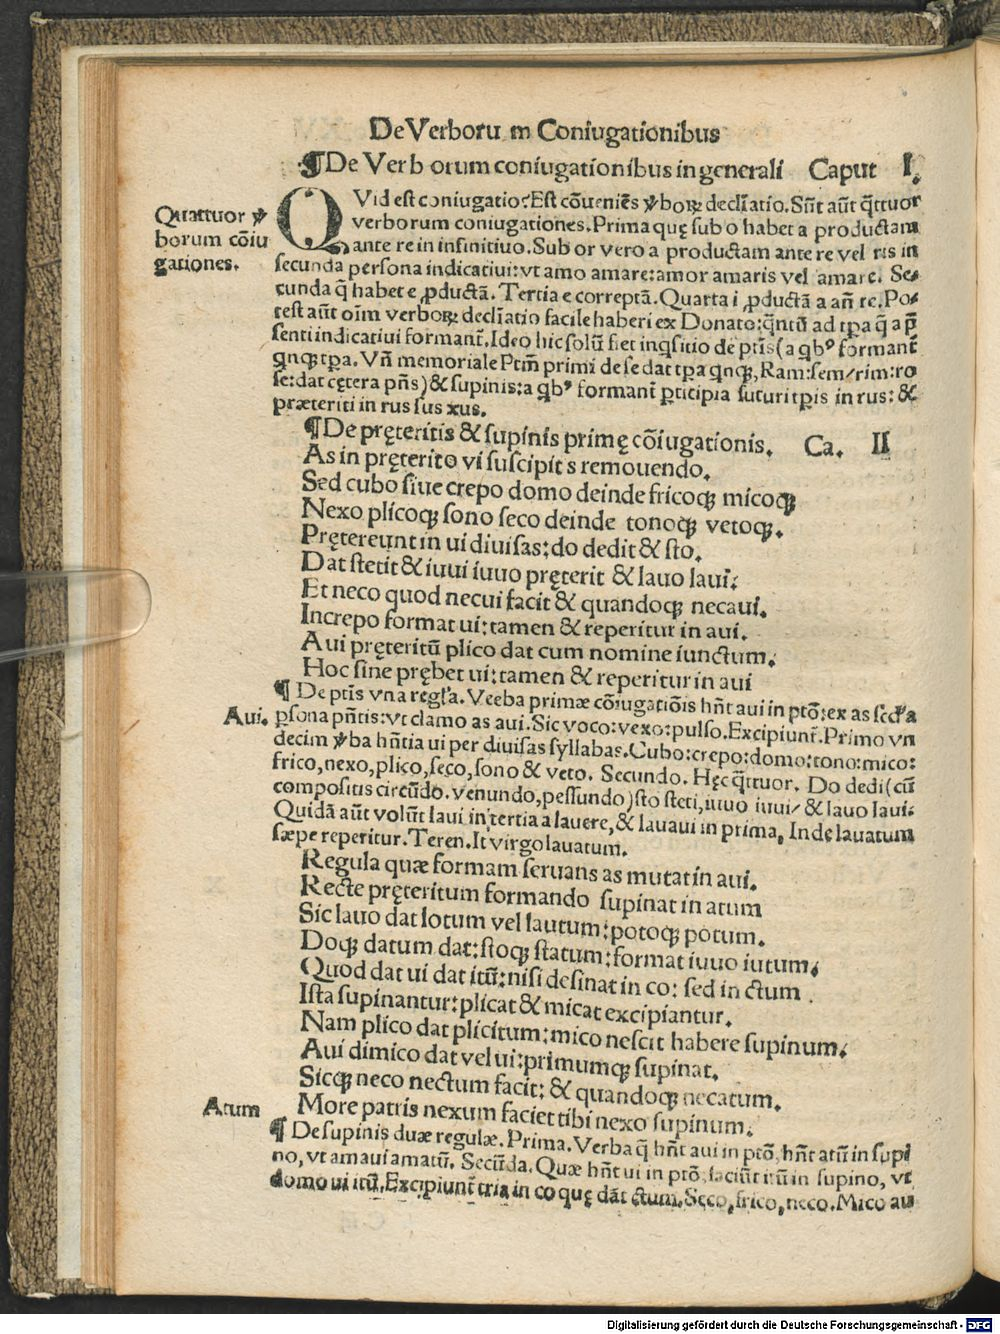 De Verboru m Coniugationibus
¶De Verb orum coniugationibus in generali Caput I.
Quattuor ꝟ
borum cōiu
gationes.
QVid est coniugatio? Est cōueniēs ꝟboꝝ declīatio. Sūt aūt q̄ttuor
verborum coniugationes. Prima quę sub o habet a productam
ante re in infinitiuo. Sub or vero a productam ante re vel ris in
secunda persona indicatiui: vt amo amare: amor amaris vel amare. Se⸗
cunda q̄ habet e ꝓductā. Tertia e correptā. Quarta i ꝓductā a añ re. Po⸗
test aūt oīm verboꝝ declīatio facile haberi ex Donato: q̄ntū ad tꝑa q̄ a p̄
senti indicatiui formanẗ. Ideo hic solū fiet inqsitio de ptīs (a qbꝰ formanẗ
qnqꝫ tꝑa. Vñ memoriale Ptm̄ primi de se dat tꝑa qnqꝫ, Ram: sem/rim: ro
se: dat cętera pñs) & supinis: a qbꝰ formanẗ ꝑticipia futuri tꝑis in rus: &
præteriti in tus sus xus.
¶De pręteritis & supinis primę cōiugationis. Ca. II
As in pręterito vi suscipit s remouendo.
Sed cubo siue crepo domo deinde fricoqꝫ micoqꝫ
Nexo plicoqꝫ sono seco deinde tonoqꝫ vetoqꝫ.
Prętereunt in ui diuisas: do dedit & sto.
Dat stetit & iuui iuuo pręterit & lauo laui:
Et neco quod necui facit & quandoqꝫ necaui.
Increpo format ui: tamen & reperitur in aui.
Aui pręteritū plico dat cum nomine iunctum.
Hoc sine prębet ui: tamen & reperitur in aui
¶ De ptīs vna regľa. Veeba primæ cōiugatiōis hñt aui in ptō: ex as secľa
Aui. ꝑsona pñtis: vt clamo as aui. Sic voco: vexo: pulso. Excipiunẗ. Primo vn
decim ꝟba hñtia ui per diuisas syllabas. Cubo: crepo: domo: tono: mico:
frico, nexo, plico, seco, sono & veto. Secundo. Hęc q̄ttuor. Do dedi (cū
compositis circūdo. venundo, pessundo) sto steti, iuuo iuui/ & lauo laui.
Quidā aūt volūt laui in tertia a lauere, & lauaui in prima, Inde lauatum
sæpe reperitur. Teren. It virgo lauatum.
Regula quæ formam seruans as mutat in aui.
Recte pręteritum formando supinat in atum
Sic lauo dat lotum vel lautum: potoqꝫ potum.
Doqꝫ datum dat: stoqꝫ statum: format iuuo iutum.
Quod dat ui dat itū: nisi desinat in co: sed in ctum.
Ista supinantur: plicat & micat excipiantur.
Nam plico dat plicitum: mico nescit habere supinum.
Aui dimico dat vel ui: primumqꝫ supinat.
Sicqꝫ neco nectum facit: & quandoqꝫ necatum.
More patris nexum faciet tibi nexo supinum.
Atum
¶ De supinis duæ regulæ. Prima. Verba q̄ hñt aui in ptō, hñt atū in supi
no, vt amaui amatū. Secūda. Quæ hñt ui in ptō, faciūt itū in supino, vt
domo ui itū. Excipiunẗ tria in co quę dāt ctum. Seco, frico, neco. Mico aū
Digitalisierung gefördert durch die Deutsche Forschungsgemeinschaft - DFG